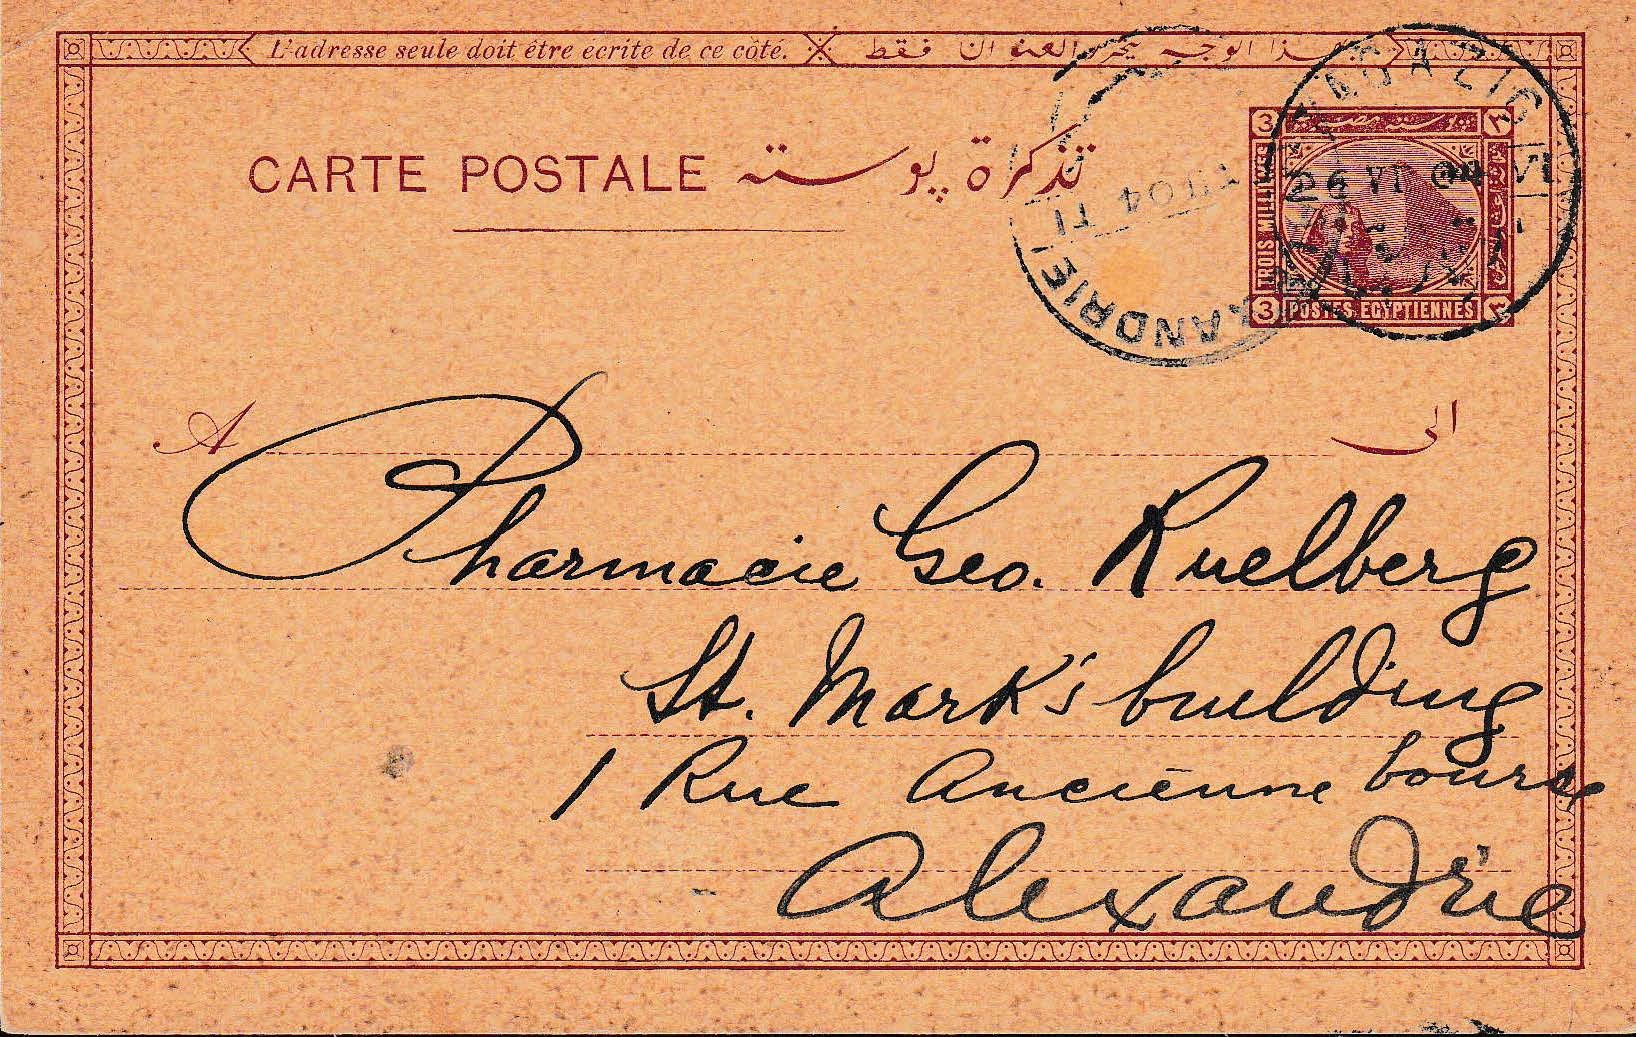 L'adresse seule doit être écrite de ce côté. هذا الوجه يحرر العنوان فقط
CARTE POSTALE تذكرة پوسته
3 بوسته مصرية ٣
TROIS MILLIEMES
3 POSTES EGYPTIENNES ٣
ZAGAZIG
26 VI
ALEXANDRIE
A الى
Pharmacie Geo. Ruelberg
St. Mark's building
1 Rue Ancienne bourse
Alexandrie